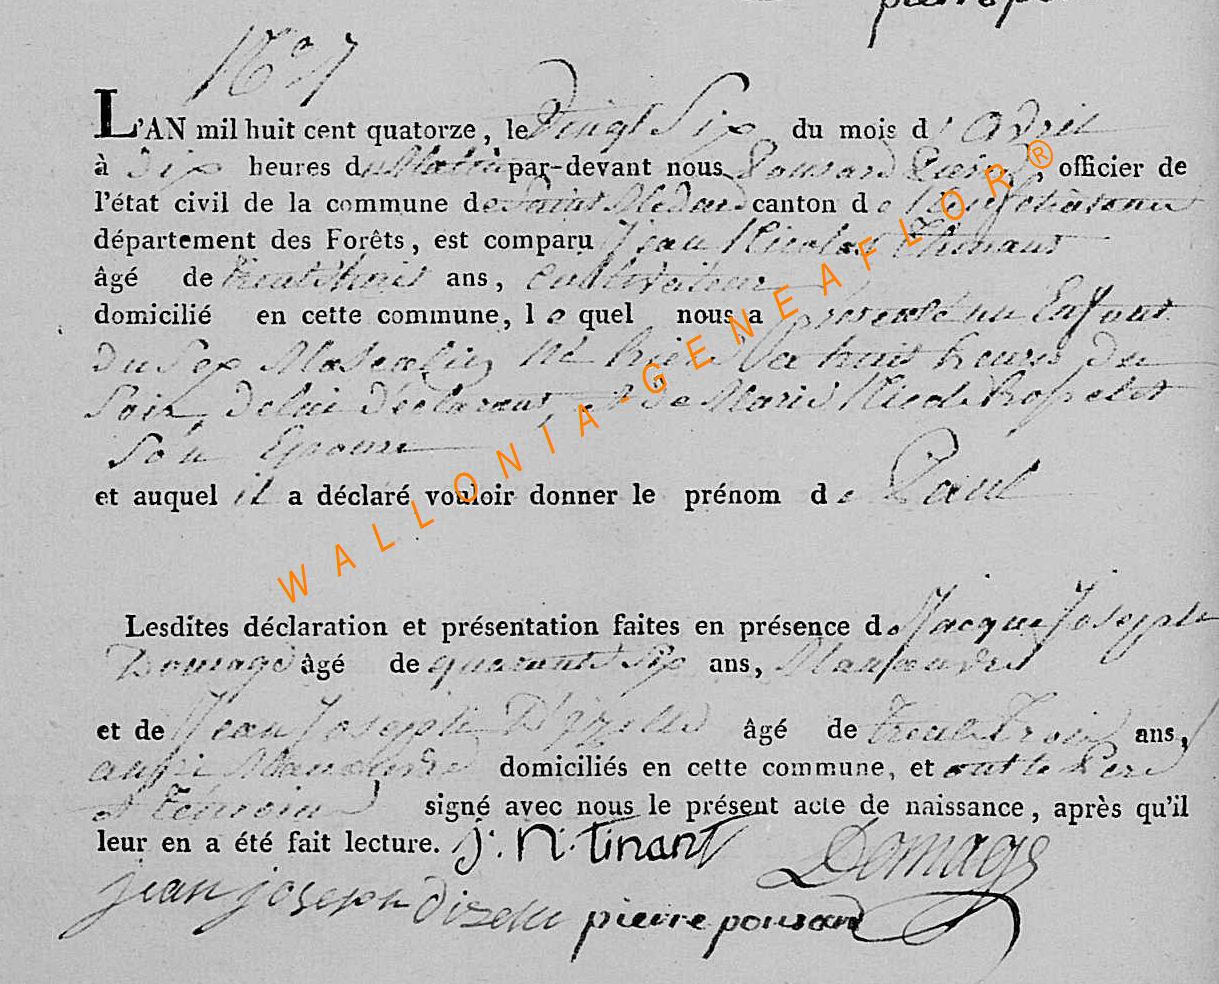 pierre po
N° 7
L'AN mil huit cent quatorze, le Vingt Six du mois d'avril
à dix heures du Matin par-devant nous Pousard Pierre, officier de
l'état civil de la commune de Saint Medard canton de Neufchateau
département des Forêts, est comparu Jean Nicolas Thinant
âgé de trente huit ans, Cultivateur
domicilié en cette commune, le quel nous a presenté un Enfant
du Sex Masculin, né hier Vers huit heures du
Soir, de lui déclarant, et de Marie
Son Epouse
et auquel il a déclaré vouloir donner le prénom de Paul
Lesdites déclaration et présentation faites en présence de Jacque Joseph
Domage âgé de quarante Six ans, Manoeuvre
et de Jean Joseph D'izelle âgé de trente Trois ans,
aussi Manoeuvre domiciliés en cette commune, et ont le Pere
et Temoins signé avec nous le présent acte de naissance, après qu'il
leur en a été fait lecture. J: N: tinant Domage
jean joseph dizelle pierre pousard
WALLONIA-GENEAFLOR®